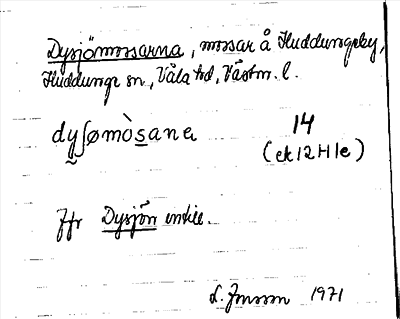 Dysjömossarna, mossar å Huddungeby,
Huddunge sn., Våla hd, Västm. l.
dyʃømòsane 14
(ek 12 H 1e)
Jfr Dysjön intill.
L. Jonsson 1971